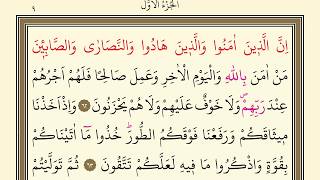 ٩ الْجُزْءُ الْاَوَّلُ
اِنَّ الَّذٖينَ اٰمَنُوا وَالَّذٖينَ هَادُوا وَالنَّصَارٰى وَالصَّابِـٖٔينَ
مَنْ اٰمَنَ بِاللّٰهِ وَالْيَوْمِ الْاٰخِرِ وَعَمِلَ صَالِحًا فَلَهُمْ اَجْرُهُمْ
عِنْدَ رَبِّهِمْ وَلَا خَوْفٌ عَلَيْهِمْ وَلَا هُمْ يَحْزَنُونَ ﴿٦٢﴾ وَاِذْ اَخَذْنَا
مٖيثَاقَكُمْ وَرَفَعْنَا فَوْقَكُمُ الطُّورَ خُذُوا مَٓا اٰتَيْنَاكُمْ
بِقُوَّةٍ وَاذْكُرُوا مَا فٖيهِ لَعَلَّكُمْ تَتَّقُونَ ﴿٦٣﴾ ثُمَّ تَوَلَّيْتُمْ